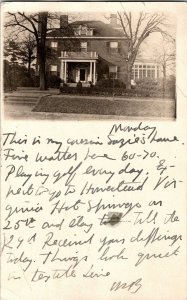 Monday
This is my cousin Suzie's home.
Fine weather here 60-70.
Playing golf every day. Ex-
pect to go to Homestead Vir-
ginia Hot Springs on
25th and stay till the
29th Received your
today. Things look quiet
in textile line